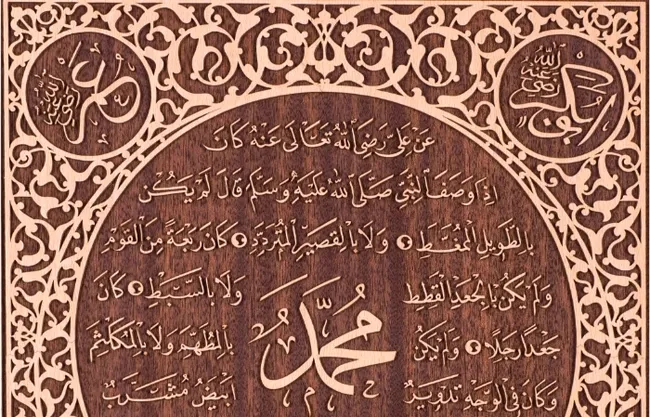 ابو بكر رضى الله عنه
عمر رضى الله عنه
عَنْ عَلِيٍّ رَضِيَ اللهُ تَعَالَى عَنْهُ كَانَ
اِذَا وَصَفَ النَّبِيَّ صَلَّى اللهُ عَلَيْهِ وَسَلَّمَ قَالَ لَمْ يَكُنْ
بِالطَّوِيلِ الْمُمَّغِطِ وَلَا بِالْقَصِيرِ الْمُتَرَدِّدِ كَانَ رَبْعَةً مِنَ الْقَوْمِ
وَلَمْ يَكُنْ بِالْجَعْدِ الْقَطِطِ وَلَا بِالسَّبْطِ كَانَ
جَعْدًا رَجِلًا وَلَمْ يَكُنْ بِالْمُطَهَّمِ وَلَا بِالْمُكَلْثَمِ
وَكَانَ فِي الْوَجْهِ تَدْوِيرٌ اَبْيَضُ مُشْرَبٌ
مُحَمَّدٌ